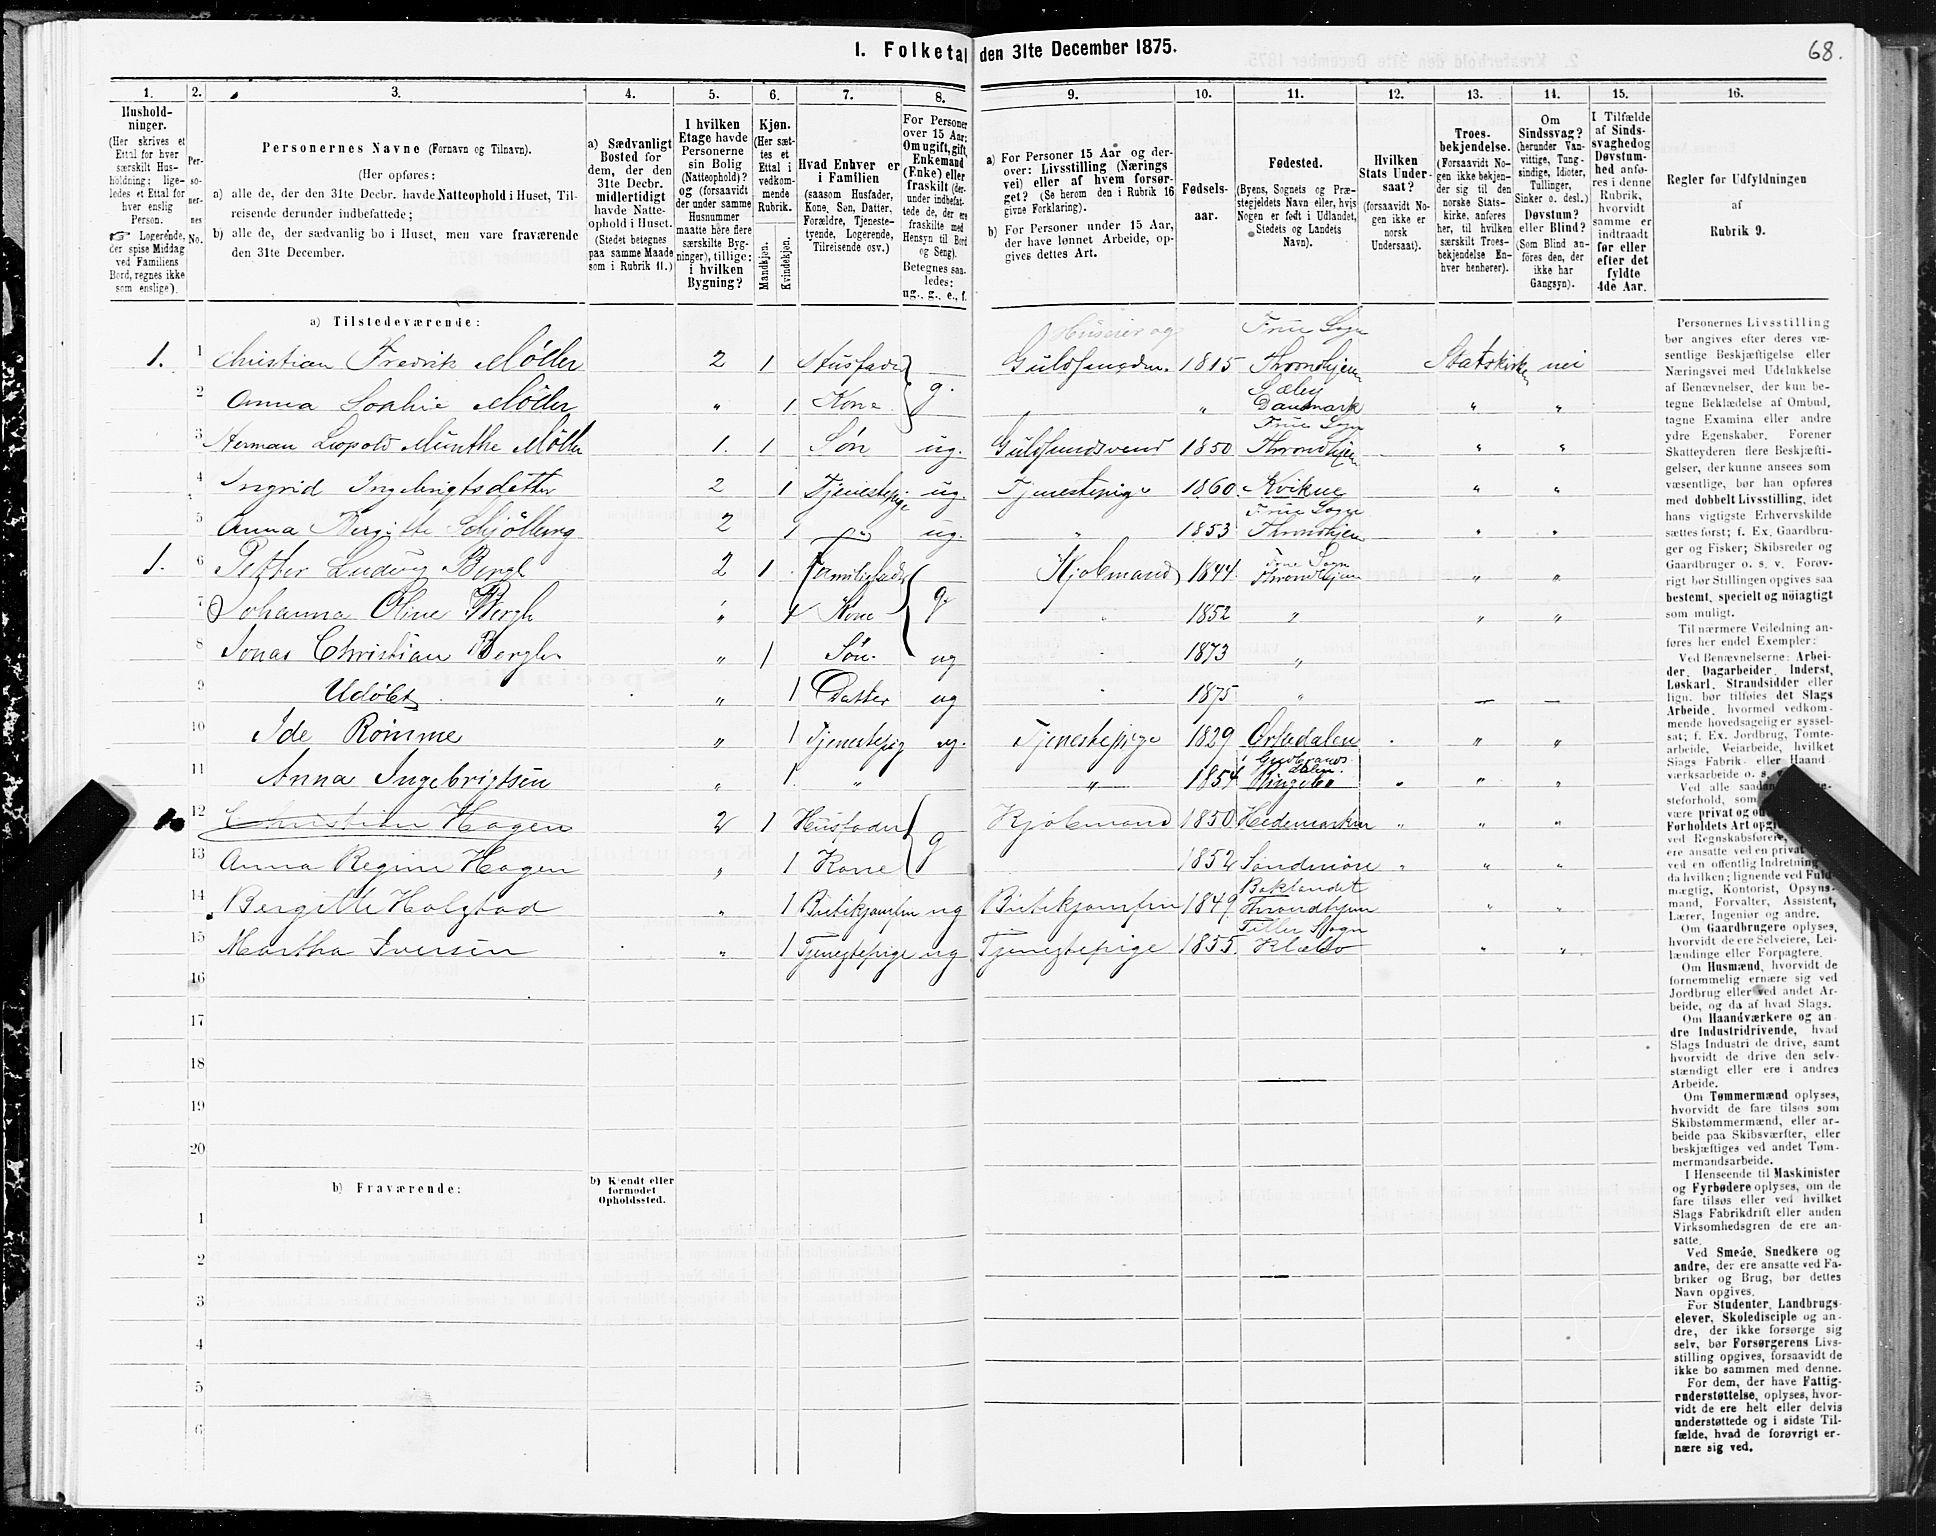 I. Folketal den 31te December 1875.
68.
1. 2. 3. 4. 5. 6. 7. 8. 9. 10. 11. 12. 13. 14. 15. 16.
Hushold-
ninger.
(Her skrives et
Ettal for hver
særskilt Hus-
holdning; lige-
ledes et Ettal for
hver enslig
Person.
☞ Logerende,
der spise Middag
ved Familiens
Bord, regnes ikke
som enslige).
Per-
so-
ner-
nes
No.
Personernes Navne (Fornavn og Tilnavn).
(Her opføres:
a) alle de, der den 31te Decbr. havde Natteophold i Huset, Til-
reisende derunder indbefattede;
b) alle de, der sædvanlig bo i Huset, men vare fraværende
den 31te December.
a) Sædvanligt
Bosted for
dem, der den
31te Decbr.
midlertidigt
havde Natte-
ophold i Huset.
(Stedet betegnes
paa samme Maade
som i Rubrik 11.)
I hvilken
Etage havde
Personerne
sin Bolig
(Natteophold)?
og (forsaavidt
der under samme
Husnummer
maatte høre flere
særskilte Byg-
ninger), tillige:
i hvilken
Bygning?
Kjøn.
(Her sæt-
tes et
Ettal i
vedkom-
mende
Rubrik.
Mandkjøn.
Kvindekjøn.
Hvad Enhver er
i Familien
(saasom Husfader,
Kone, Søn, Datter,
Forældre, Tjeneste-
tyende, Logerende,
Tilreisende osv.)
For Personer
over 15 Aar:
Om ugift, gift,
Enkemand
(Enke) eller
fraskilt (der-
under indbefat-
tede de, der ere
fraskilte med
Hensyn til Bord
og Seng).
Betegnes saa-
ledes:
ug., g., e., f.
a) For Personer 15 Aar og der-
over: Livsstilling (Nærings
vei) eller af hvem forsør-
get? (Se herom den i Rubrik 16
givne Forklaring).
b) For Personer under 15 Aar,
der have lønnet Arbeide, op-
gives dettes Art.
Fødsels-
aar.
Fødested.
(Byens, Sognets og Præ-
stegjeldets Navn eller, hvis
Nogen er født i Udlandet,
Stedets og Landets
Navn).
Hvilken
Stats Under-
saat?
(forsaavidt No-
gen ikke er
norsk
Undersaat).
Troes-
bekjendelse.
(Forsaavidt No-
gen ikke bekjen-
der sig til den
norske Stats-
kirke, anføres
her, til hvilken
særskilt Troes-
bekjendelse En-
hver henhører).
Om
Sindssvag?
(herunder Van-
vittige, Tung-
sindige, Idioter,
Tullinger,
Sinker o. desl.)
Døvstum?
eller Blind?
(Som Blind an-
føres den, der
ikke har
Gangsyn).
I Tilfælde
af Sinds-
svaghed og
Døvstum-
hed anfø-
res i denne
Rubrik,
hvorvidt
samme er
indtraadt
før eller
efter det
fyldte
4de Aar.
Regler for Udfyldningen
af
Rubrik 9.
a) Tilstedeværende:
Huseier og Frue Sogn
1. 1 Christian Fredrik Møller 2 1 Husfader g. Guldsmedm. 1815 Throndhjem Statskirken nei
2 Anna Sophie Møller " 1 Kone " Danmark " "
Frue Sogn
3 Herman Leopold Munthe Møller 1. 1 Søn ug. Guldsmedsvend 1850 Throndhjem " "
4 Ingrid Ingebrigtsdatter 2 1 Tjenestepige ug. Tjenestepige 1860 Kvikne " "
Frue Sogn
5 Anna Bergitte Schjølberg 2 1 " ug. " 1853 Throndhjem " "
Frue Sogn
1. 6 Petter Ludvig Bergh 2 1 Familiefader g. Kjøbmand 1844 Throndhjem " "
7 Johanna Oline Bergh " 1 Kone 1852 " " "
8 Jonas Christian Bergh " 1 Søn ug 1873 "
9 Udøbt " 1 Datter ug 1875 " — —
10 Ide Romme " 1 Tjenestepig ug. Tjenestepige 1829 Orkedalen " "
i Gudbrands
dalen.
11 Anna Ingebrigtsen " 1 " " 1854 Ringebo " "
12 Christian Hagen 2 1 Husfader g Kjøbmand 1850 Hedemarken " " "
13 Anna Regine Hagen " 1 Kone 1852 Søndmøre " " "
Baklandet
14 Bergitte Halgstad " 1 Butikjomfru ug Butikjomfru 1849 Throndhjem " "
Tiller Sogn
15 Martha Iversen " 1 Tjenestepige ug Tjenestepige 1855 Klæbo " "
16
17
18
19
20
b) Fraværende:
b) Kjendt eller
formodet
Opholdssted.
1
2
3
4
5
6
Personernes Livsstilling
bør angives efter deres væ-
sentlige Beskjæftigelse eller
Næringsvei med Udelukkelse
af Benævnelser, der kun be-
tegne Beklædelse af Ombud,
tagne Examina eller andre
ydre Egenskaber. Forener
Skatteyderen flere Beskjæfti-
gelser, der kunne ansees som
væsentlige, bør han opføres
med dobbelt Livsstilling, idet
hans vigtigste Erhvervskilde
sættes først; f. Ex. Gaardbru-
ger og Fisker; Skibsreder og
Gaardbruger o. s. v. Forøv-
rigt bør Stillingen opgives saa
bestemt, specielt og nøiagtigt
som muligt.
Til nærmere Veiledning an-
føres her endel Exempler:
Ved Benævnelserne: Arbei-
der, Dagarbeider, Inderst,
Løskarl, Strandsidder eller
lign. bør tilføies det Slags
Arbeide, hvormed vedkom-
mende hovedsagelig er syssel-
sat; f. Ex. Jordbrug, Tomte-
arbeide, Veiarbeide, hvilket
Slags Fabrik- eller Haand
værksarbeide o. s. v.
Ved alle saadan
steforhold, som
være privat og
Forholdets Art
ved Regnskabsføre
ere ansatte ved en privat
ved en offentlig Indretning
da hvilken; lignende ved Fuld-
mægtig, Kontorist, Opsyns-
mand, Forvalter, Assistent,
Lærer, Ingeniør og andre.
Om Gaardbrugere oplyses,
hvorvidt de ere Selveiere, Lei-
lændinge eller Forpagtere.
Om Husmænd, hvorvidt de
fornemmelig ernære sig ved
Jordbrug eller ved andet Ar-
beide, og da af hvad Slags.
Om Haandværkere og an
dre Industridrivende, hvad
Slags Industri de drive, samt
hvorvidt de drive den selv-
stændigt eller ere i andres
Arbeide.
Om Tømmermænd oplyses,
hvorvidt de fare tilsøs som
Skibstømmermænd, eller ar-
beide paa Skibsværfter, eller
beskjæftiges ved andet Tøm-
mermandsarbeide.
I Henseende til Maskinister
og Fyrbødere oplyses, om de
fare tilsøs eller ved hvilket
Slags Fabrikdrift eller anden
Virksomhedsgren de ere an-
satte.
Ved Smede, Snedkere og
andre, der ere ansatte ved Fa-
briker og Brug, bør dettes
Navn opgives.
For Studenter, Landbrugs-
elever, Skoledisciple og an-
dre, der ikke forsørge sig
selv, bør Forsørgerens Livs-
stilling opgives, forsaavidt de
ikke bo sammen med denne.
For dem, der have Fattig-
understøttelse, oplyses, hvor-
vidt de ere helt eller delvis
understøttede og i sidste Til-
fælde, hvad de forøvrigt er-
nære sig ved.